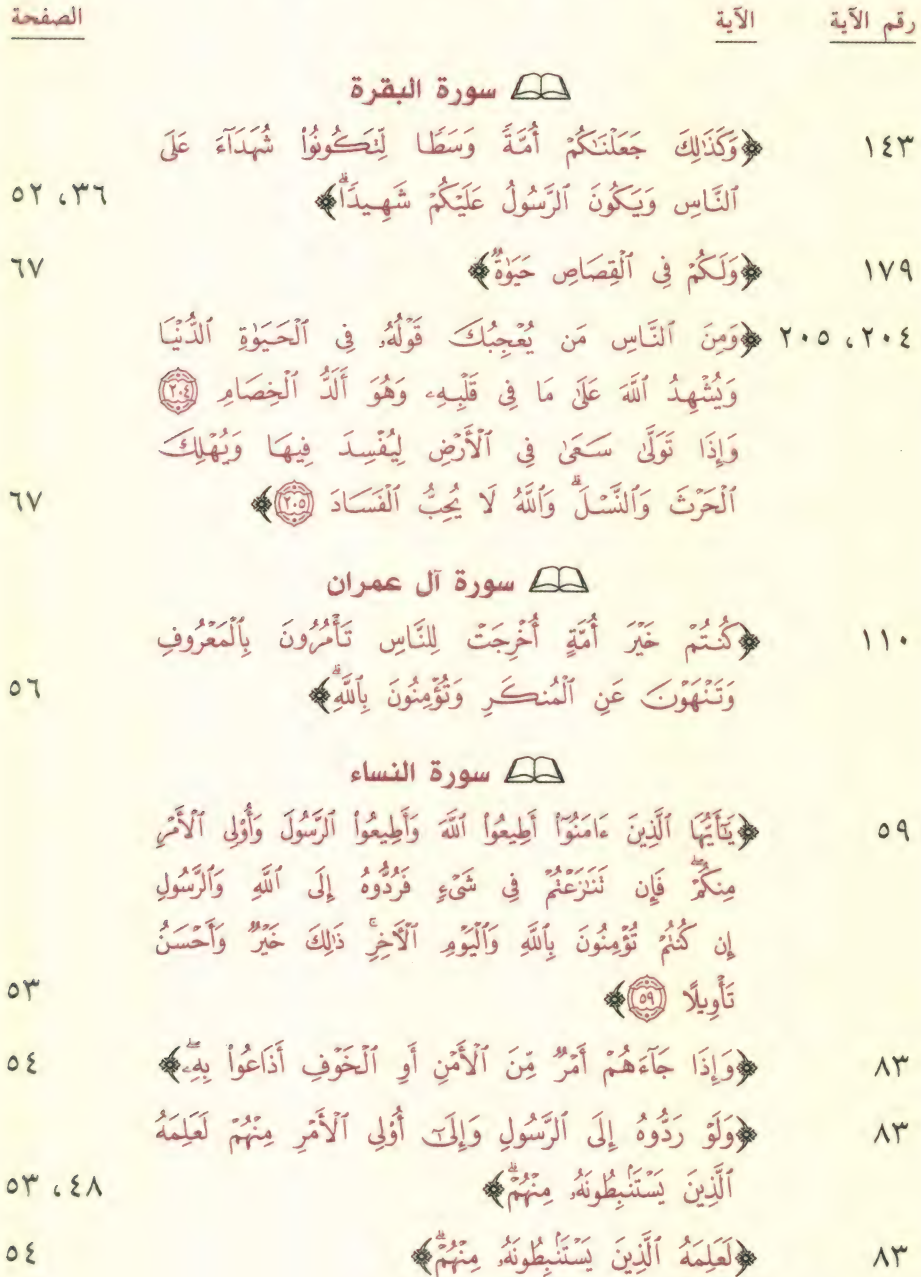 رقم الآية الآية الصفحة
سورة البقرة
١٤٣ ﴿وَكَذَٰلِكَ جَعَلْنَٰكُمْ أُمَّةً وَسَطًا لِّتَكُونُوا۟ شُهَدَآءَ عَلَى
ٱلنَّاسِ وَيَكُونَ ٱلرَّسُولُ عَلَيْكُمْ شَهِيدًاۗ﴾ ٣٦، ٥٢
١٧٩ ﴿وَلَكُمْ فِى ٱلْقِصَاصِ حَيَوٰةٌ﴾ ٦٧
٢٠٤، ٢٠٥ ﴿وَمِنَ ٱلنَّاسِ مَن يُعْجِبُكَ قَوْلُهُۥ فِى ٱلْحَيَوٰةِ ٱلدُّنْيَا
وَيُشْهِدُ ٱللَّهَ عَلَىٰ مَا فِى قَلْبِهِۦ وَهُوَ أَلَدُّ ٱلْخِصَامِ ٢٠٤
وَإِذَا تَوَلَّىٰ سَعَىٰ فِى ٱلْأَرْضِ لِيُفْسِدَ فِيهَا وَيُهْلِكَ
ٱلْحَرْثَ وَٱلنَّسْلَۗ وَٱللَّهُ لَا يُحِبُّ ٱلْفَسَادَ ٢٠٥﴾ ٦٧
سورة آل عمران
١١٠ ﴿كُنتُمْ خَيْرَ أُمَّةٍ أُخْرِجَتْ لِلنَّاسِ تَأْمُرُونَ بِٱلْمَعْرُوفِ
وَتَنْهَوْنَ عَنِ ٱلْمُنكَرِ وَتُؤْمِنُونَ بِٱللَّهِۗ﴾ ٥٦
سورة النساء
٥٩ ﴿يَٰٓأَيُّهَا ٱلَّذِينَ ءَامَنُوٓا۟ أَطِيعُوا۟ ٱللَّهَ وَأَطِيعُوا۟ ٱلرَّسُولَ وَأُو۟لِى ٱلْأَمْرِ
مِنكُمْۖ فَإِن تَنَٰزَعْتُمْ فِى شَىْءٍ فَرُدُّوهُ إِلَى ٱللَّهِ وَٱلرَّسُولِ
إِن كُنتُمْ تُؤْمِنُونَ بِٱللَّهِ وَٱلْيَوْمِ ٱلْءَاخِرِۚ ذَٰلِكَ خَيْرٌ وَأَحْسَنُ
تَأْوِيلًا ٥٩﴾ ٥٣
٨٣ ﴿وَإِذَا جَآءَهُمْ أَمْرٌ مِّنَ ٱلْأَمْنِ أَوِ ٱلْخَوْفِ أَذَاعُوا۟ بِهِۦۖ﴾ ٥٤
٨٣ ﴿وَلَوْ رَدُّوهُ إِلَى ٱلرَّسُولِ وَإِلَىٰٓ أُو۟لِى ٱلْأَمْرِ مِنْهُمْ لَعَلِمَهُ
ٱلَّذِينَ يَسْتَنۢبِطُونَهُۥ مِنْهُمْۗ﴾ ٤٨، ٥٣
٨٣ ﴿لَعَلِمَهُ ٱلَّذِينَ يَسْتَنۢبِطُونَهُۥ مِنْهُمْۗ﴾ ٥٤